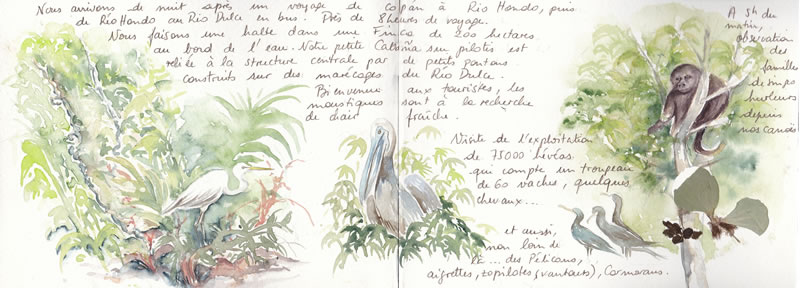 Nous arrivons de nuit après un voyage de Copán à Rio Hondo, puis
de Rio Hondo au Rio Dulce en bus. Près de 8 heures de voyage.
Nous faisons une halte dans une Finca de 200 hectares
au bord de l'eau. Notre petite Cabaña sur pilotis est
reliée à la structure centrale par de petits pontons
construits sur des marécages du Rio Dulce.
Bienvenue aux touristes, les
moustiques sont à la recherche
de chair fraîche.
A 5h du
matin,
observation
des
familles
de singes
hurleurs
depuis
nos canoës
Visite de l'exploitation
de 75000 hévéas
qui compte un troupeau
de 60 vaches, quelques
chevaux...
et aussi,
non loin de
là ... des Pélicans,
aigrettes, zopilotes (vautours), Cormorans.